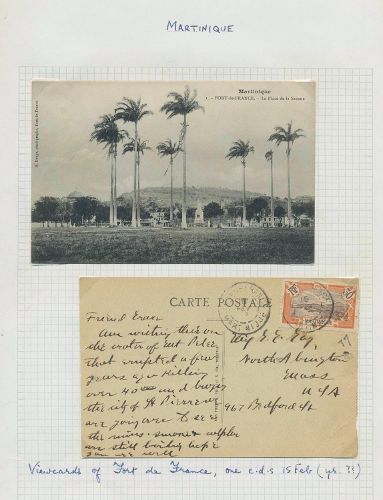 MARTINIQUE
Martinique
1 - FORT-de-FRANCE. - La Place de la Savane
CARTE POSTALE
Friend Evan
Am writing this on
the water of Mt Pelee
that erupted a few
years ago killing
over 4000 and burying
the city of St Pierre we
are going over to see
the ruins. smoke
are still boiling
you are well
Mr E. E. Fay,
North Abington
Mass
USA
967 Bedford St
Viewcards of Fort de France, one c.d.s 15 Feb (yr. ??)